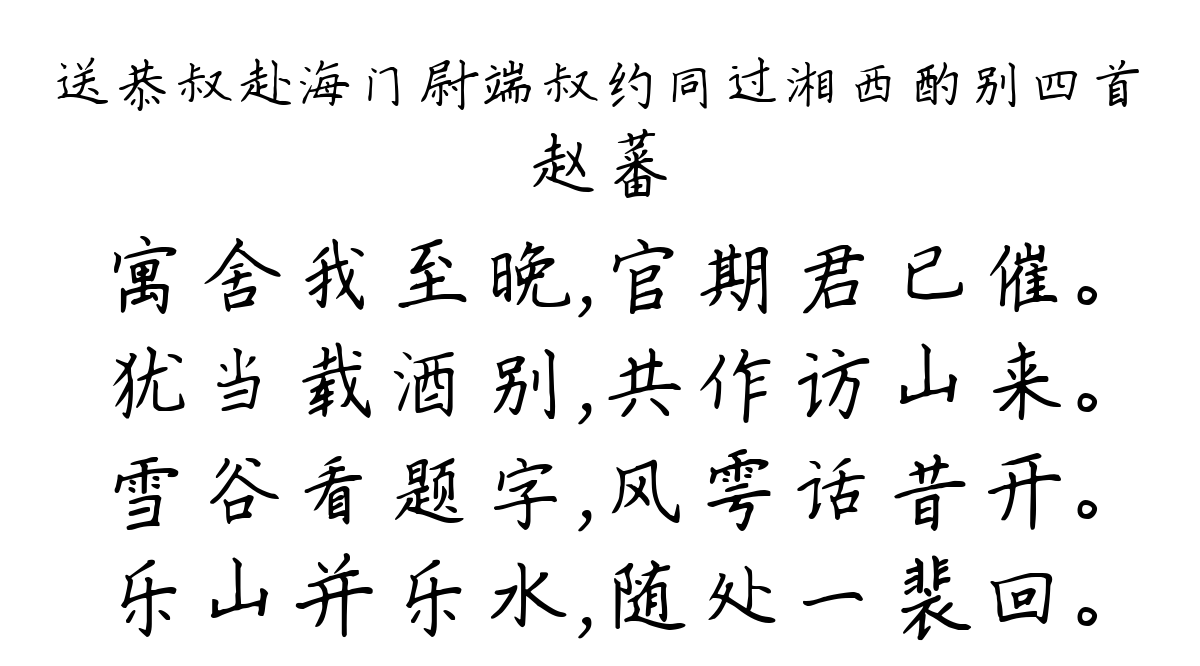 送恭叔赴海门尉端叔约同过湘西酌别四首
赵蕃
寓舍我至晚,官期君已催。
犹当载酒别,共作访山来。
雪谷看题字,风雩话昔开。
乐山并乐水,随处一裴回。